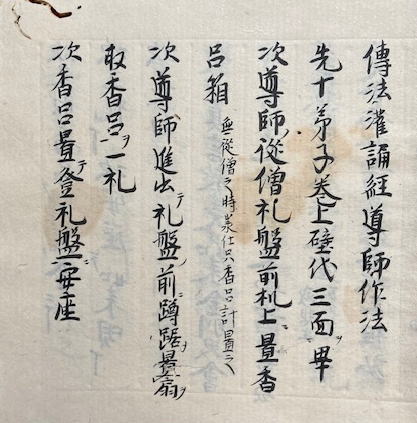 傳法灌誦経導師作法
先十弟子巻上壁代三面畢
次導師従僧礼盤前机上置香
呂箱 無従僧之時承仕只香呂計置之
次導師進出テ礼盤前ニ蹲踞置扇ヲ
取香呂ヲ一礼
次香呂置テ登礼盤ニ安座